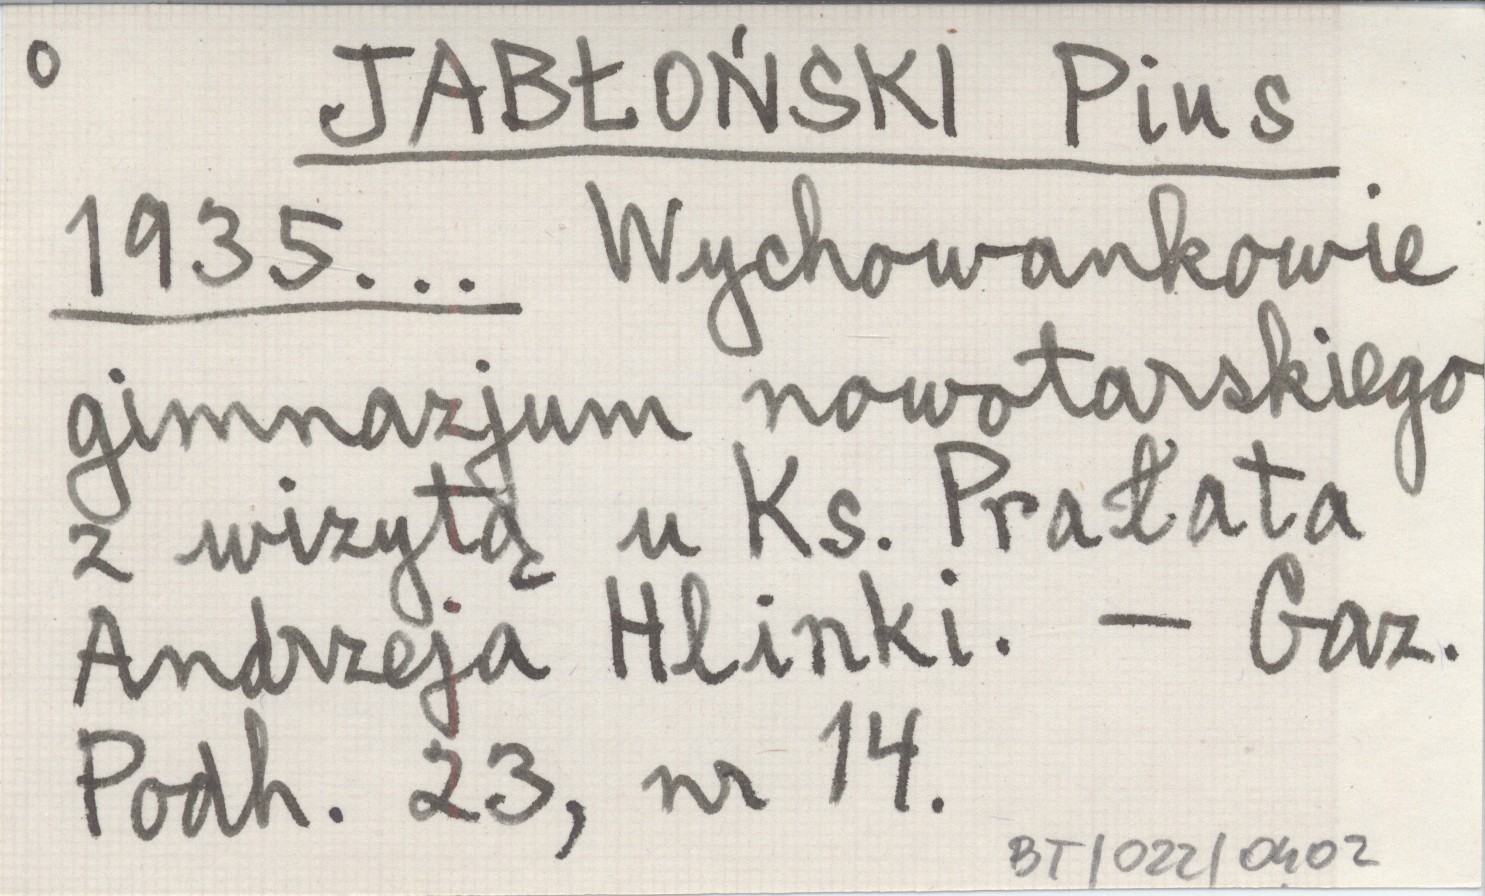 o JABŁOŃSKI Pius
1935... Wychowankowie
gimnazjum nowotarskiego
z wizytą u Ks. Prałata
Andrzeja Hlinki. — Gaz.
Podh. 23, nr 14.
BT/022/0402